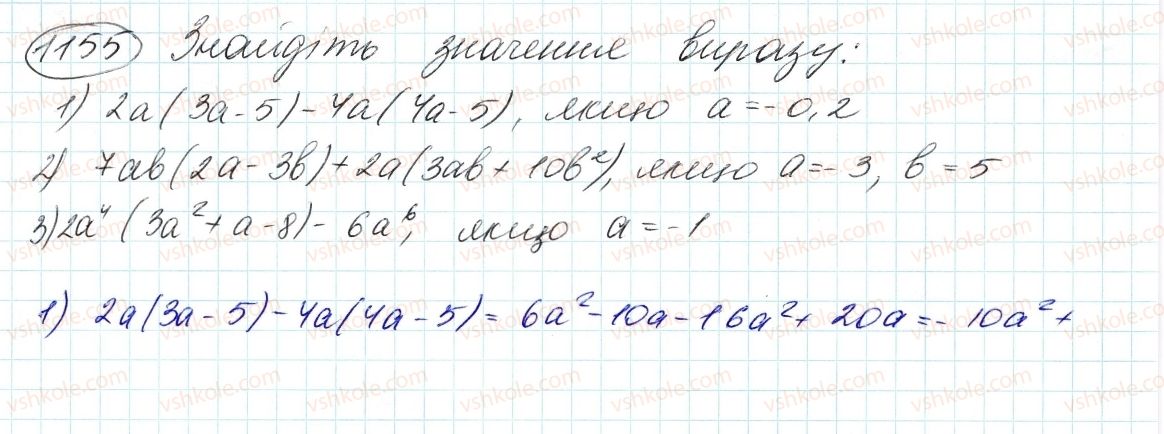 1155 Знайдіть значення виразу:
1) 2a(3a-5)-4a(4a-5), якщо a=-0,2
2) 7ab(2a-3b)+2a(3ab+10b²), якщо a=-3, b=5
3) 2a⁴(3a²+a-8)-6a⁶, якщо a=-1
1) 2a(3a-5)-4a(4a-5)=6a²-10a-16a²+20a=-10a²+